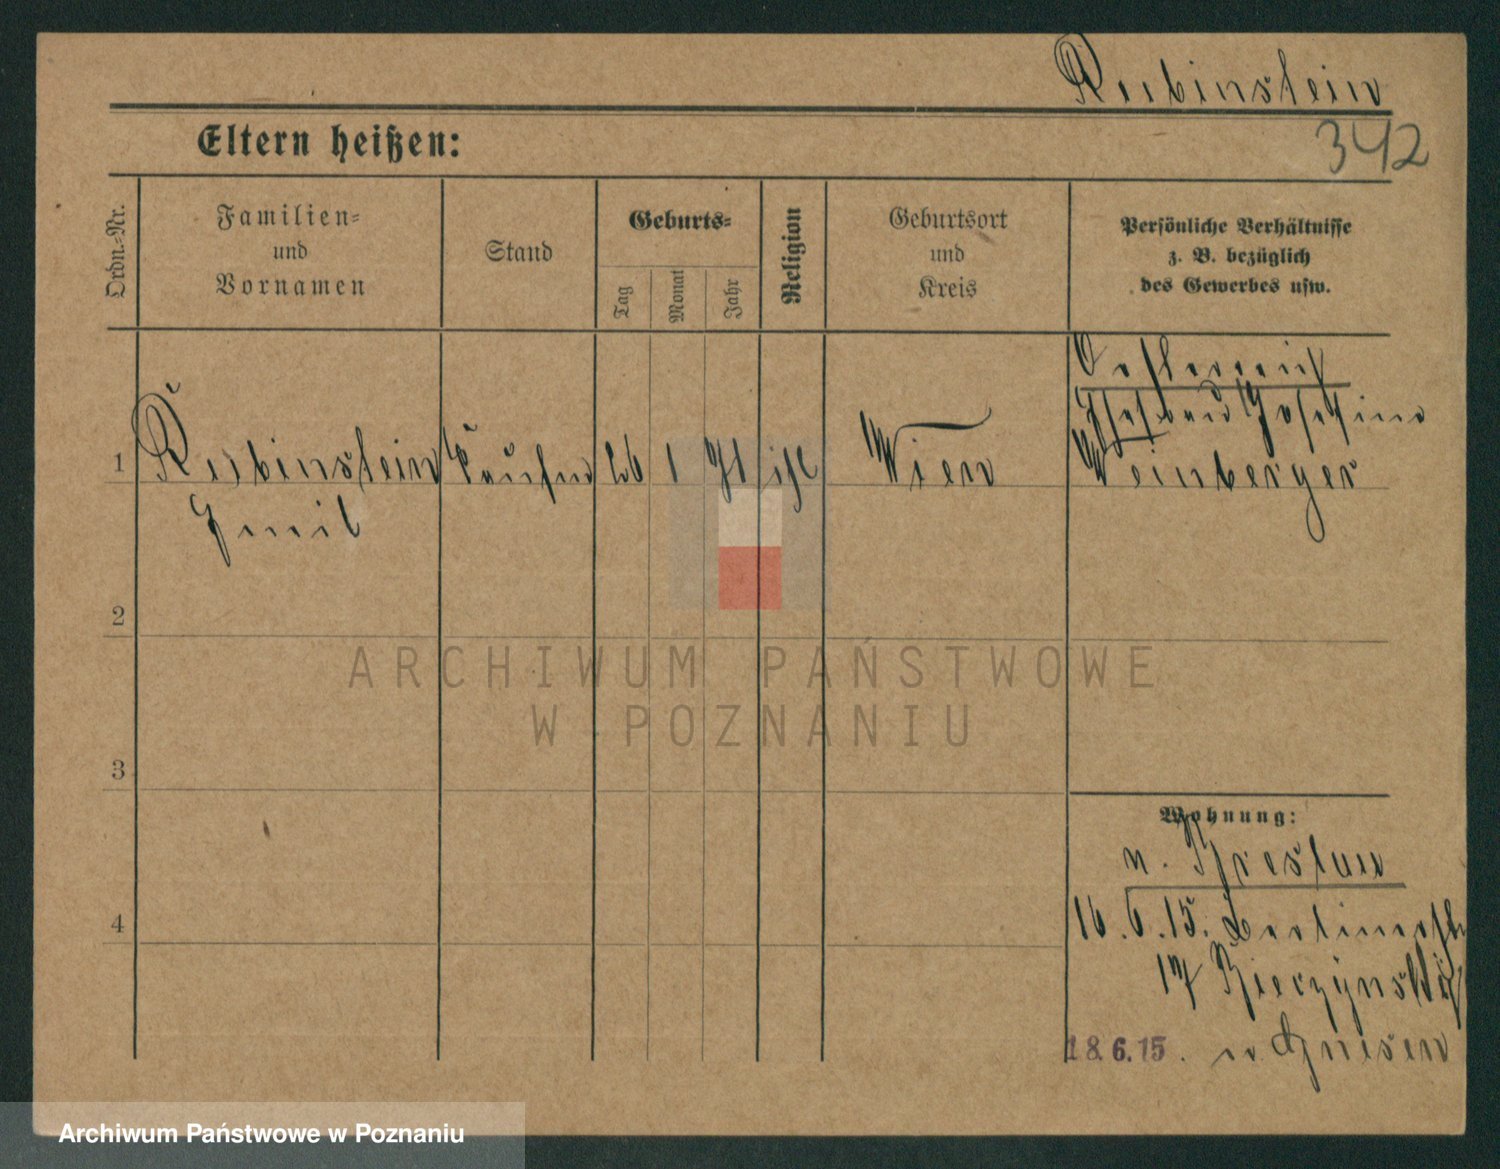 Rubinstein
Eltern heißen:
342
Ordn.-Nr.
Familien-
und
Vornamen
Stand
Geburts-
Tag
Monat
Jahr
Religion
Geburtsort
und
Kreis
Persönliche Verhältnisse
z. B. bezüglich
des Gewerbes usw.
Oesterreich
1
Rubinstein
Kaufm
26
1
71
isr
Wien
Josefine
Weinberger
Emil
2
ARCHIWUM PAŃSTWOWE
W POZNANIU
3
Wohnung:
n. Breslau
4
16.6.15. Berlinerstr
17
18.6.15. n Gnesen
Archiwum Państwowe w Poznaniu